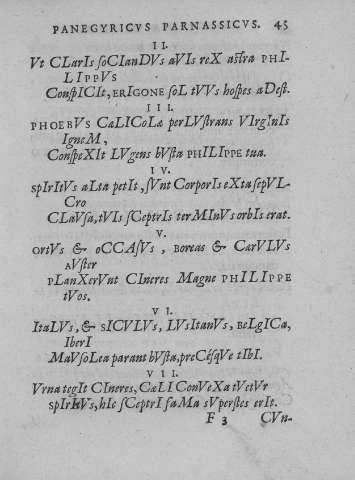 PANEGYRICVS PARNASSICVS. 45
II.
Vt CLarIs ſoCIanDVs aVIs reX aſtra PHI-
LIPPVS
ConſpICIt, ERIGONE ſoL tVVs hoſpes aDeſt.
III.
PHOEBVS CaLICoLæ perLVſtrans VIrgInIs
IgneM,
ConſpeXIt LVgens bVſta PHILIPPE tua.
IV.
spIrItVs aLta petIt, ſVnt CorporIs eXta ſepVL-
Cro
CLaVſa, tVIs ſCeptrIs terMInVs orbIs erat.
V.
OrtVs & oCCAſVs, Boreas & CærVLVs
AVſter
PLanXerVnt CIneres Magne PHILIPPE
tVos.
VI.
ItaLVs, & SICVLVs, LVsItanVs, BeLgICa,
IberI
MaVſoLea parant bVſta, preCéſqVe tIbI.
VII.
Vrna tegIt CIneres, CæLI ConVeXa tVetVr
SpIrItVs, hIc ſCeptrI faMa sVperſtes erIt.
F 3 CVn-